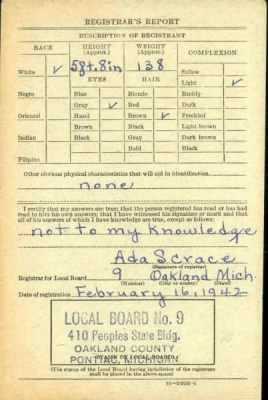 REGISTRAR'S REPORT
DESCRIPTION OF REGISTRANT
RACE HEIGHT (Approx.) WEIGHT (Approx.) COMPLEXION
White ✓ 5ft.8in 138 Sallow
EYES HAIR Light ✓
Negro Blue Blonde Ruddy
Gray ✓ Red Dark
Oriental Hazel Brown ✓ Freckled
Brown Black Light brown
Indian Black Gray Dark brown
Bald Black
Filipino
Other obvious physical characteristics that will aid in identification
none
I certify that my answers are true; that the person registered has read or has had
read to him his own answers; that I have witnessed his signature or mark and that
all of his answers of which I have knowledge are true, except as follows:
not to my knowledge
Ada Scrace
(Signature of registrar)
Registrar for Local Board 9 Oakland Mich.
(Number) (City or county) (State)
Date of registration February 16, 1942
LOCAL BOARD No. 9
410 Peoples State Bldg.
OAKLAND COUNTY
PONTIAC, MICHIGAN
(STAMP OF LOCAL BOARD)
(The stamp of the Local Board having jurisdiction of the registrant
shall be placed in the above space)